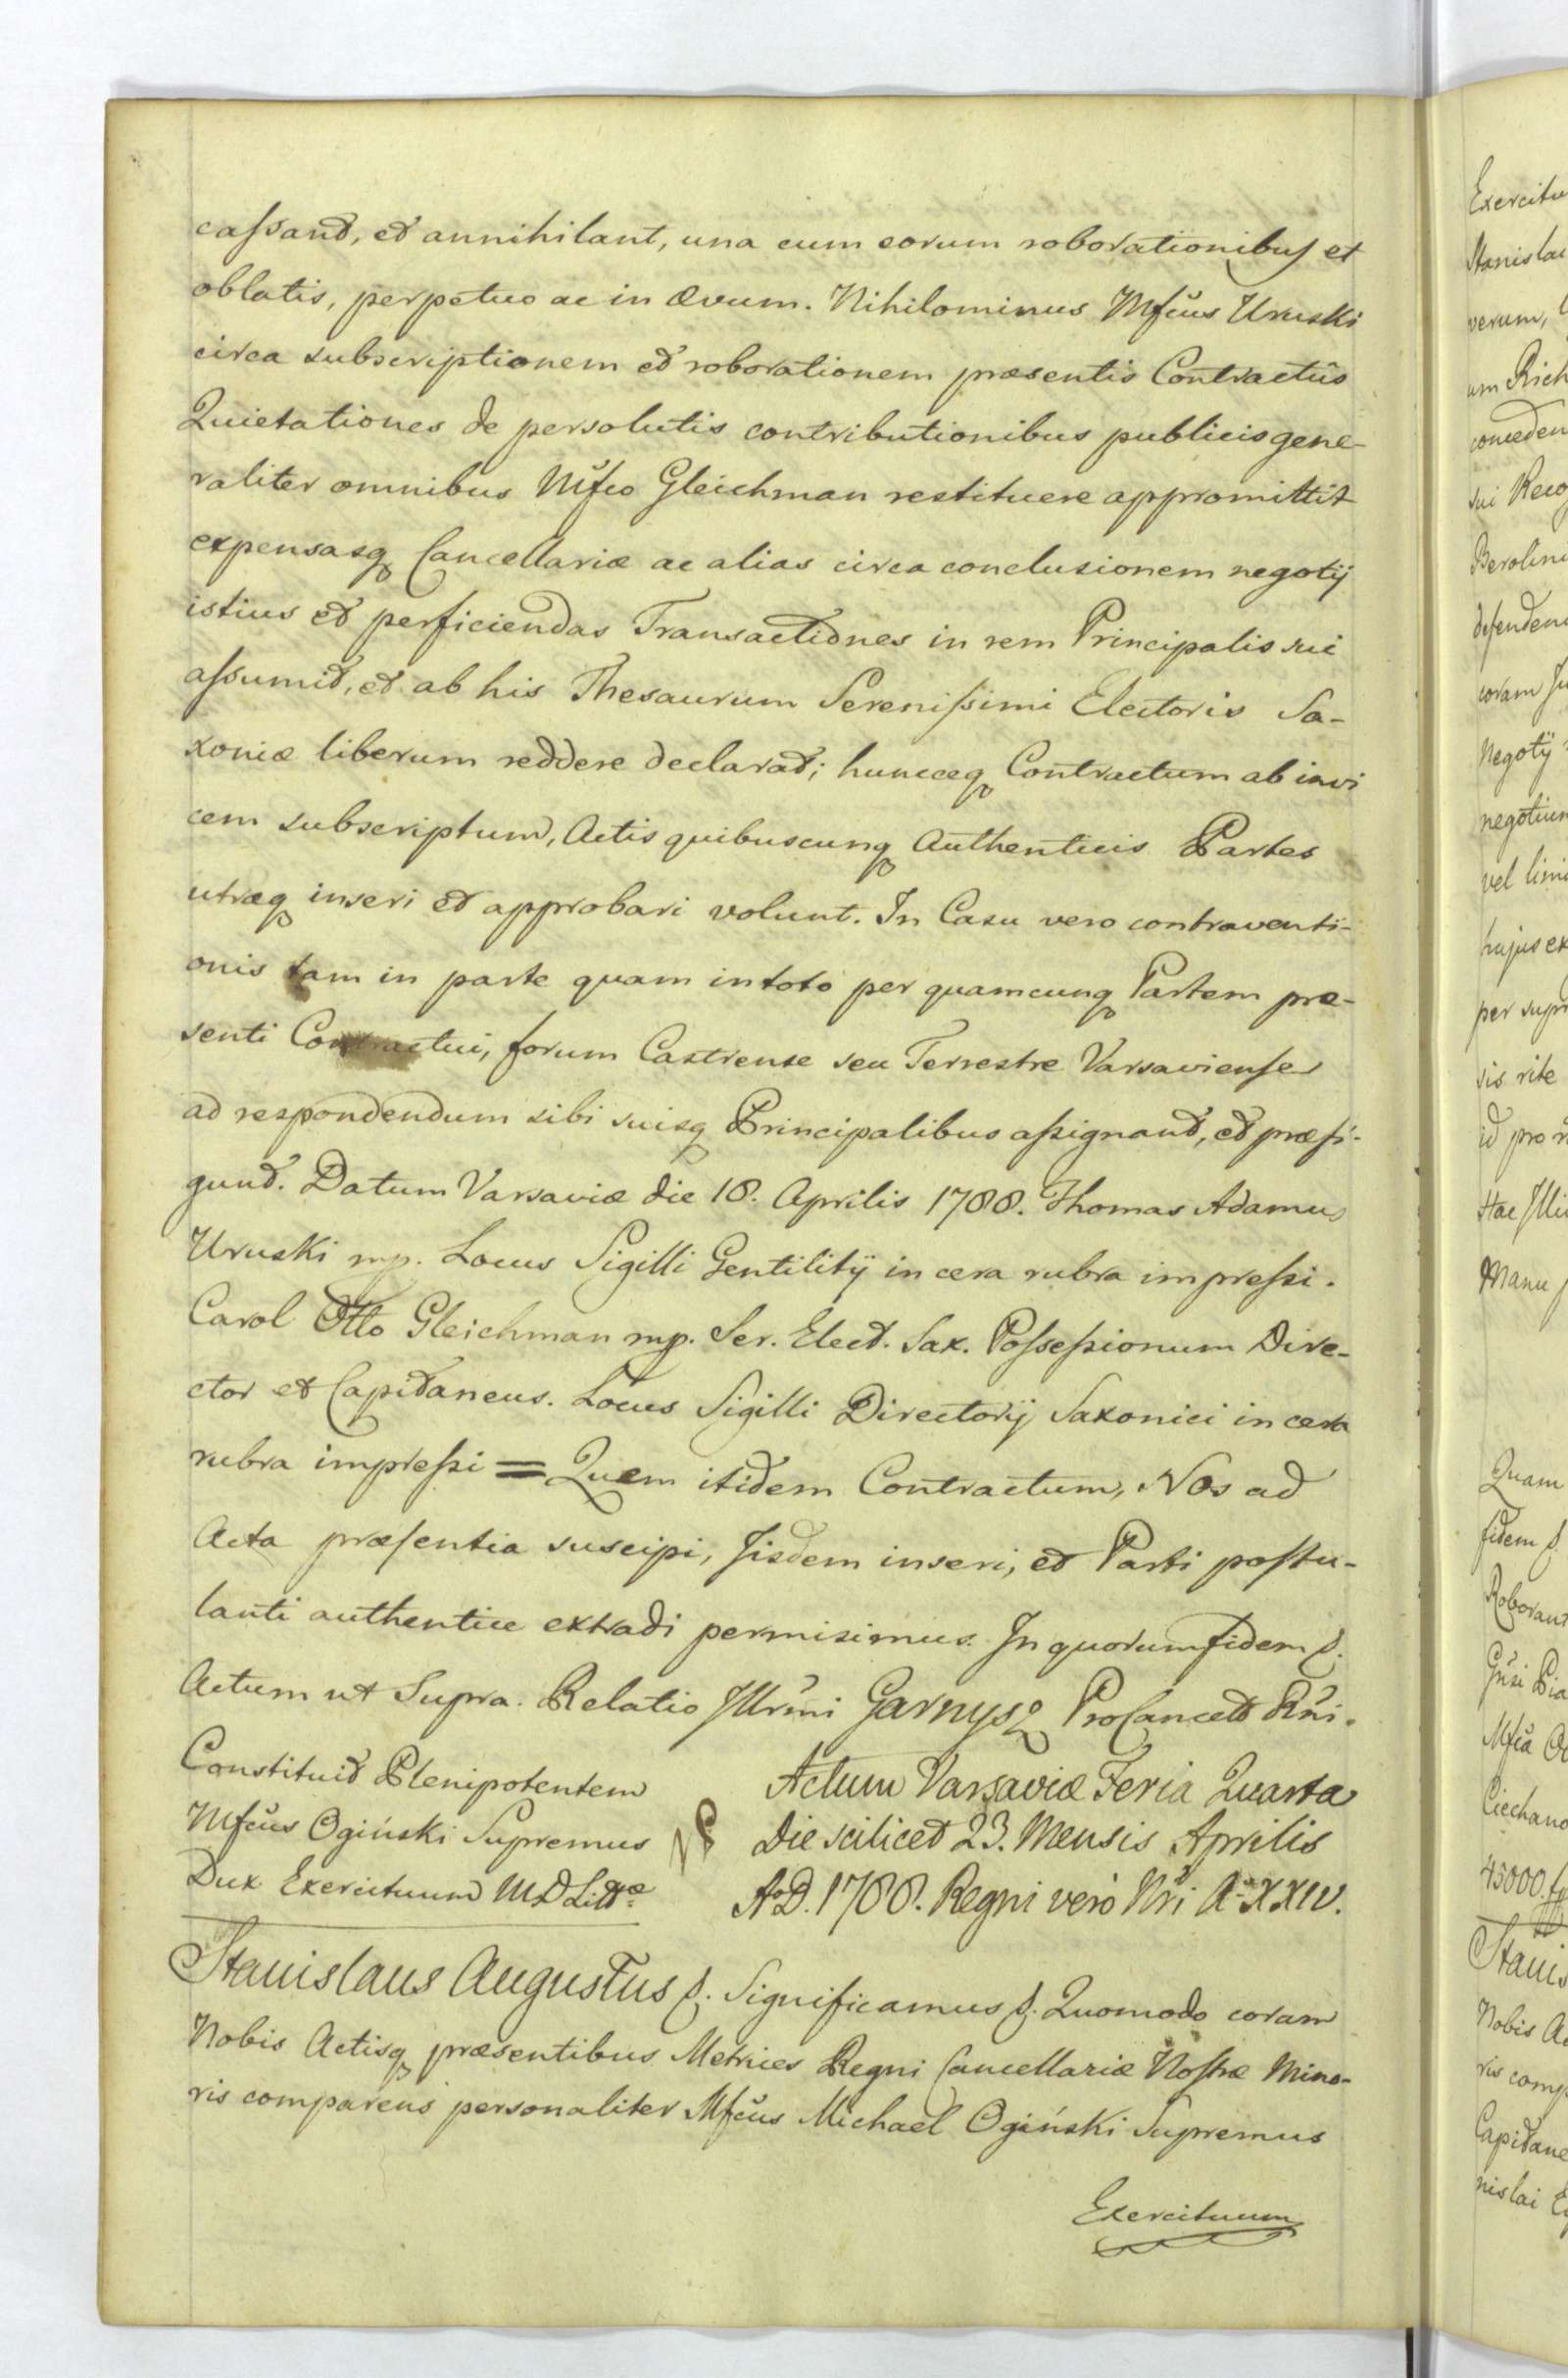 caſsant, et annihilant, una cum eorum roborationibus et
oblatis, perpetuo ac in ævum. Nihilominus Mfcus Uruski
circa subscriptionem et roborationem præsentis Contractus
Quietationes de persolutis contributionibus publicis gene-
raliter omnibus Mfco Gleichman restituere appromittit
expensasq Cancellariæ ac alias circa conclusionem negotij
istius et perficiendas Transactiones in rem Principalis sui
aſsumit, et ab his Thesaurum Sereniſsimi Electoris Sa-
xoniæ liberum reddere declarat; hunceq Contractum ab invi
cem subscriptum, Actis quibuscunq Authenticis Partes
utræq inseri et approbari volunt. In Casu vero contraventi-
onis tam in parte quam in toto per quamcunq Partem præ-
senti Contractui, forum Castrense seu Terrestre Varsavienſe
ad respondendum sibi suisq Principalibus aſsignant, et præfi-
gunt. Datum Varsaviæ die 18. Aprilis 1788. Thomas Adamus
Uruski mp. Locus Sigilli Gentilitij in cera rubra impreſsi.
Carol Otto Gleichman mp. Ser. Elect. Sax. Poſseſsionum Dire-
ctor et Capitaneus. Locus Sigilli Directorij Saxonici in cera
rubra impreſsi = Quem itidem Contractum, Nos ad
Acta præſentia suscipi, Jisdem inseri, et Parti poſtu-
lanti authentice extradi permisimus. In quorum fidem
Actum ut Supra. Relatio Illrmi Garnysz ProCancell Rni.
Constituit Plenipotentem
Mfcus Ogiński Supremus
Dux Exercituum M D Littæ
Actum Varsaviæ Feria Quarta
Die scilicet 23. Mensis Aprilis
A.D. 1788. Regni vero Nri A. XXIV.
Stanislaus Augustus Significamus Quomodo coram
Nobis Actisq præsentibus Metrices Regni Cancellariæ Noſtræ Mino-
ris comparens personaliter Mfcus Michael Ogiński Supremus
Exercituum
Exercitu
Stanislai
verum,
um Rich
conceden
sui Reco
Berolin
defenden
coram Ju
Negotij
negotium
vel
hujus ex
per supr
sis rite
id pro
Hac
Manu
Quam
fidem
Roborant
Mfca
Ciechano
45000
Stanis
Nobis Ac
ris comp
Capitane
nislai